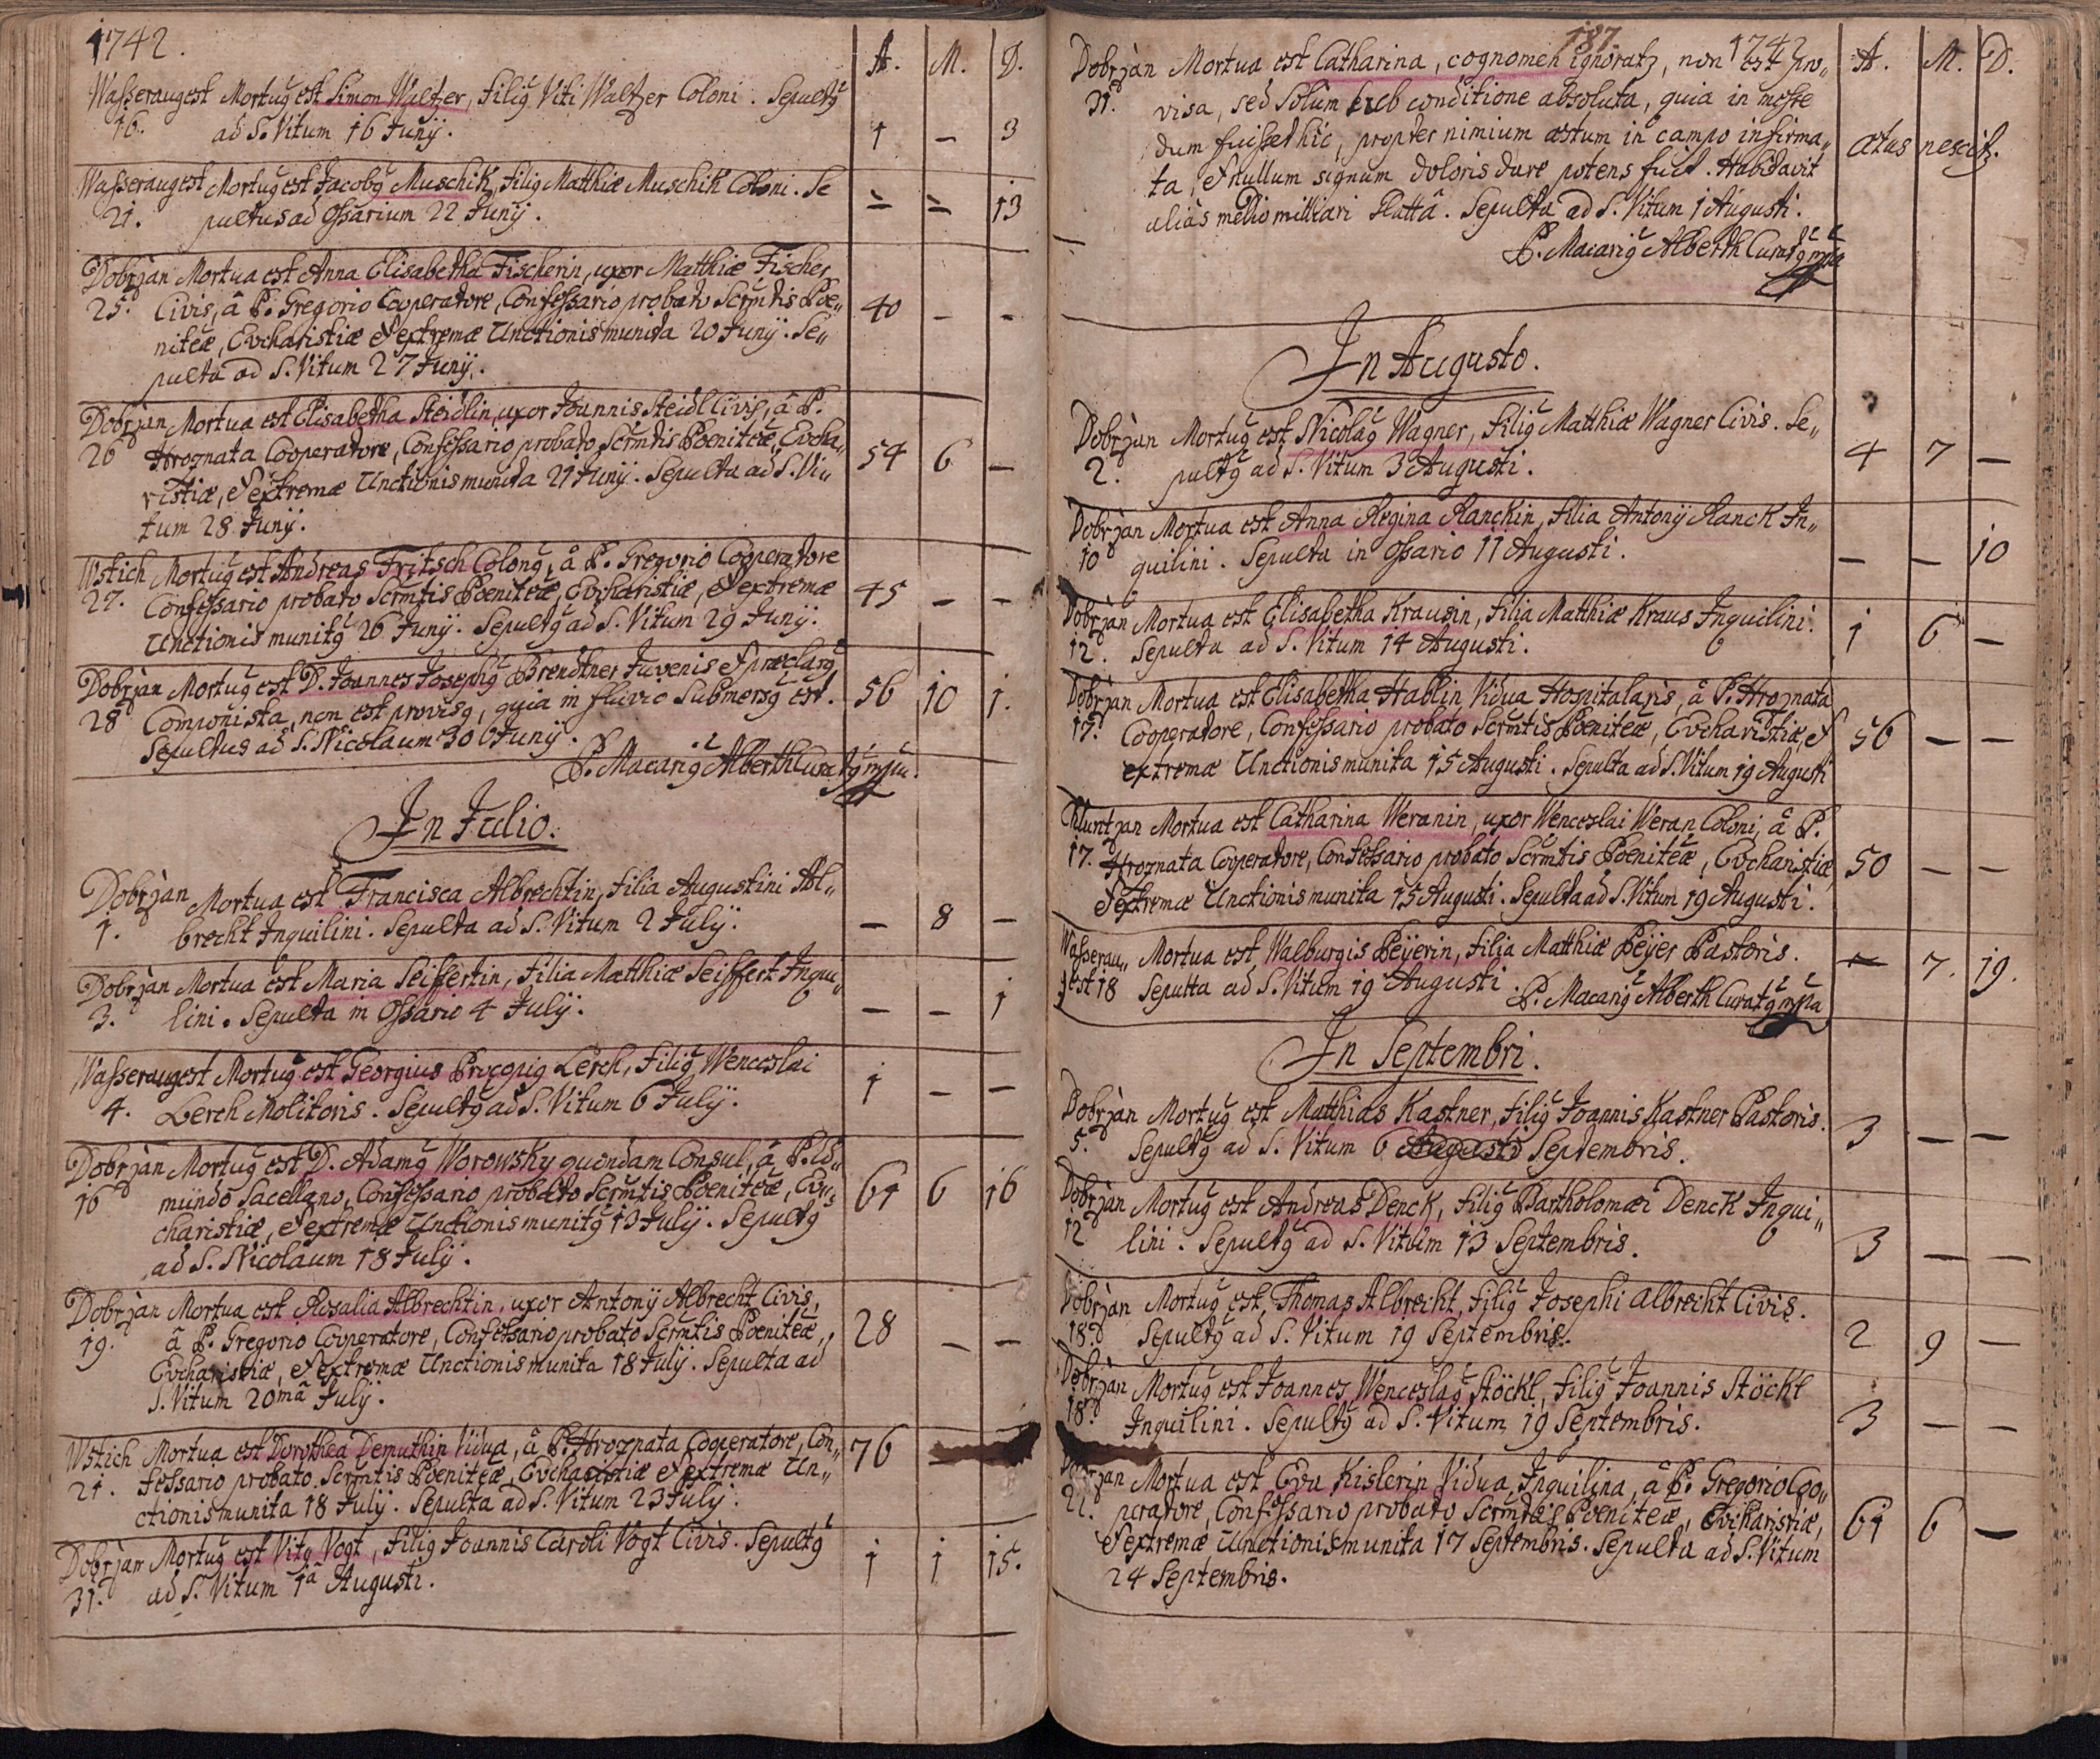 1742.
A. M. D.
Wasseraugest Mortuꝰ est Simon Waltzer, Filiꝰ Viti Waltzer Coloni. Sepultꝰ
16. ad S. Vitum 16 Junij. 1 — 3
Wasseraugest Mortuꝰ est Jacobꝰ Muschik, Filiꝰ Matthiæ Muschik Coloni. Se
21. pultus ad Ossarium 22 Junij. — — 13
Dobrzan Mortua est Anna Elisabetha Fischerin, uxor Matthiæ Fischer
25. Civis, â P. Gregorio Cooperatore, Confessario probato Scrmtis Pœ„ 40 — —
nitēæ, Evcharistiæ & extremæ Unctionis munita 20 Junij. Se„
pulta ad S. Vitum 27 Junij.
Dobrzan Mortua est Elisabetha Steidlin, uxor Joannis Steidl Civis, â P.
26 Hroznata Cooperatore, Confessario probato Scrmtis Pœnitēæ, Evcha„ 54 6 —
ristiæ, & extremæ Unctionis munita 21 Junij. Sepulta ad S. Vi„
tum 28 Junij.
Wstich Mortuꝰ est Andreas Fritsch Colonꝰ, â P. Gregorio Cooperatore
27. Confessario probato Scrmtis Pœnitēæ, Evcharistiæ, & extremæ 45 — —
Unctionis munitꝰ 26 Junij. Sepultꝰ ad S. Vitum 29 Junij.
Dobrzan Mortuꝰ est D. Joannes Josephꝰ Brendtner Juvenis & præclarꝰ
28 Componista, non est provisꝰ, quia in fluvio submersꝰ est. 56 10 1.
Sepultus ad S. Nicolaum 30 Junij.
P. Macariꝰ Alberth Curatꝰ mpia.
In Julio.
Dobrzan Mortua est Francisca Albrechtin, Filia Augustini Al„
1. brecht Inquilini. Sepulta ad S. Vitum 2 Julij. — 8 —
Dobrzan Mortua est Maria Seiffertin, Filia Matthiæ Seiffert Inqui„
3. lini. Sepulta in Ossario 4 Julij. — — 1
Wasseraugest Mortuꝰ est Georgius Procopiꝰ Lerch, Filiꝰ Wenceslai
4. Lerch Molitoris. Sepultꝰ ad S. Vitum 6 Julij. 1 — —
Dobrzan Mortuꝰ est D. Adamꝰ Worowsky quondam Consul, â P.
16 mundo Sacellano, Confessario probato Scrmtis Pœnitēæ, Ev„ 61 6 16
charistiæ, & extremæ Unctionis munitꝰ 13 Julij. Sepultꝰ
ad S. Nicolaum 18 Julij.
Dobrzan Mortua est Rosalia Albrechtin, uxor Antonij Albrecht Civis,
19. â P. Gregorio Cooperatore, Confessario probato Scrmtis Pœnitēæ, 28 — —
Evcharistiæ, & extremæ Unctionis munita 18 Julij. Sepulta ad
S. Vitum 20mâ Julij.
Wstich Mortua est Dorothea Demuthin Vidua, â P. Hroznata Cooperatore, Con„ 76 —
21. fessario probato Scrmtis Pœnitēæ, Evcharistiæ & extremæ Un„
ctionis munita 18 Julij. Sepulta ad S. Vitum 23 Julij.
Dobrzan Mortuꝰ est Vitꝰ Vogt, Filiꝰ Joannis Caroli Vogt Civis. Sepultꝰ
31. ad S. Vitum 1â Augusti. 1 1 15.
187.
1742
A. M. D.
Dobrzan Mortua est Catharina, cognomen ignoratꝛ, non est pro„
31. visa, sed solum sub conditione absoluta, quia in messe
dum fuisset hic, propter nimium æstum in campo infirma„ ætas nescitꝛ.
ta, & nullum signum doloris dare potens fuit. Habitavit
aliàs medio milliari Plattâ. Sepulta ad S. Vitum 1 Augusti.
P. Macariꝰ Alberth Curatꝰ mpia
In Augusto.
Dobrzan Mortuꝰ est Nicolaꝰ Wagner, Filiꝰ Matthiæ Wagner Civis. Se„
2. pultꝰ ad S. Vitum 3 Augusti. 4 7 —
Dobrzan Mortua est Anna Regina Ranckin, Filia Antonij Ranck In„
10 quilini. Sepulta in Ossario 11 Augusti. — — 10
Dobrzan Mortua est Elisabetha Krausin, Filia Matthiæ Kraus Inquilini.
12. Sepulta ad S. Vitum 14 Augusti. 1 6 —
Dobrzan Mortua est Elisabetha Hablin, Vidua Hospitalaris, â P. Hroznata
17. Cooperatore, Confessario probato Scrmtis Pœnitēæ, Evcharistiæ, & 56 — —
extremæ Unctionis munita 15 Augusti. Sepulta ad S. Vitum 19 Augusti
Chluntzan Mortua est Catharina Weranin, uxor Wenceslai Weran Coloni, â P.
17. Hroznata Cooperatore, Confessario probato Scrmtis Pœnitēæ, Evcharistiæ, 50 — —
& extremæ Unctionis munita 15 Augusti. Sepulta ad S. Vitum 19 Augusti.
Wasserau„ Mortua est Walburgis Peÿerin, Filia Matthiæ Peÿer Pastoris.
gest 18 Sepulta ad S. Vitum 19 Augusti. — 7. 19.
P. Macariꝰ Alberth Curatꝰ mpia
In Septembri.
Dobrzan Mortuꝰ est Matthias Kastner, Filiꝰ Joannis Kastner Pastoris.
5. Sepultꝰ ad S. Vitum 6 Augusti Septembris. 3 — —
Dobrzan Mortuꝰ est Andreas Denck, Filiꝰ Bartholomæi Denck Inqui„
12 lini. Sepultꝰ ad S. Vitum 13 Septembris. 3 — —
Dobrzan Mortuꝰ est Thomas Albrecht, Filiꝰ Josephi Albrecht Civis.
18. Sepultꝰ ad S. Vitum 19 Septembris. 2 9 —
Dobrzan Mortuꝰ est Joannes Wenceslaꝰ Stöckl, Filiꝰ Joannis Stöckl
18. Inquilini. Sepultꝰ ad S. Vitum 19 Septembris. 3 — —
Dobrzan Mortua est Eva Kislerin Vidua, Inquilina, â P. Gregorio Coo„
21. peratore, Confessario probato Scrmtis Pœnitēæ, Evcharistiæ, 61 6 —
& extremæ Unctionis munita 17 Septembris. Sepulta ad S. Vitum
24 Septembris.